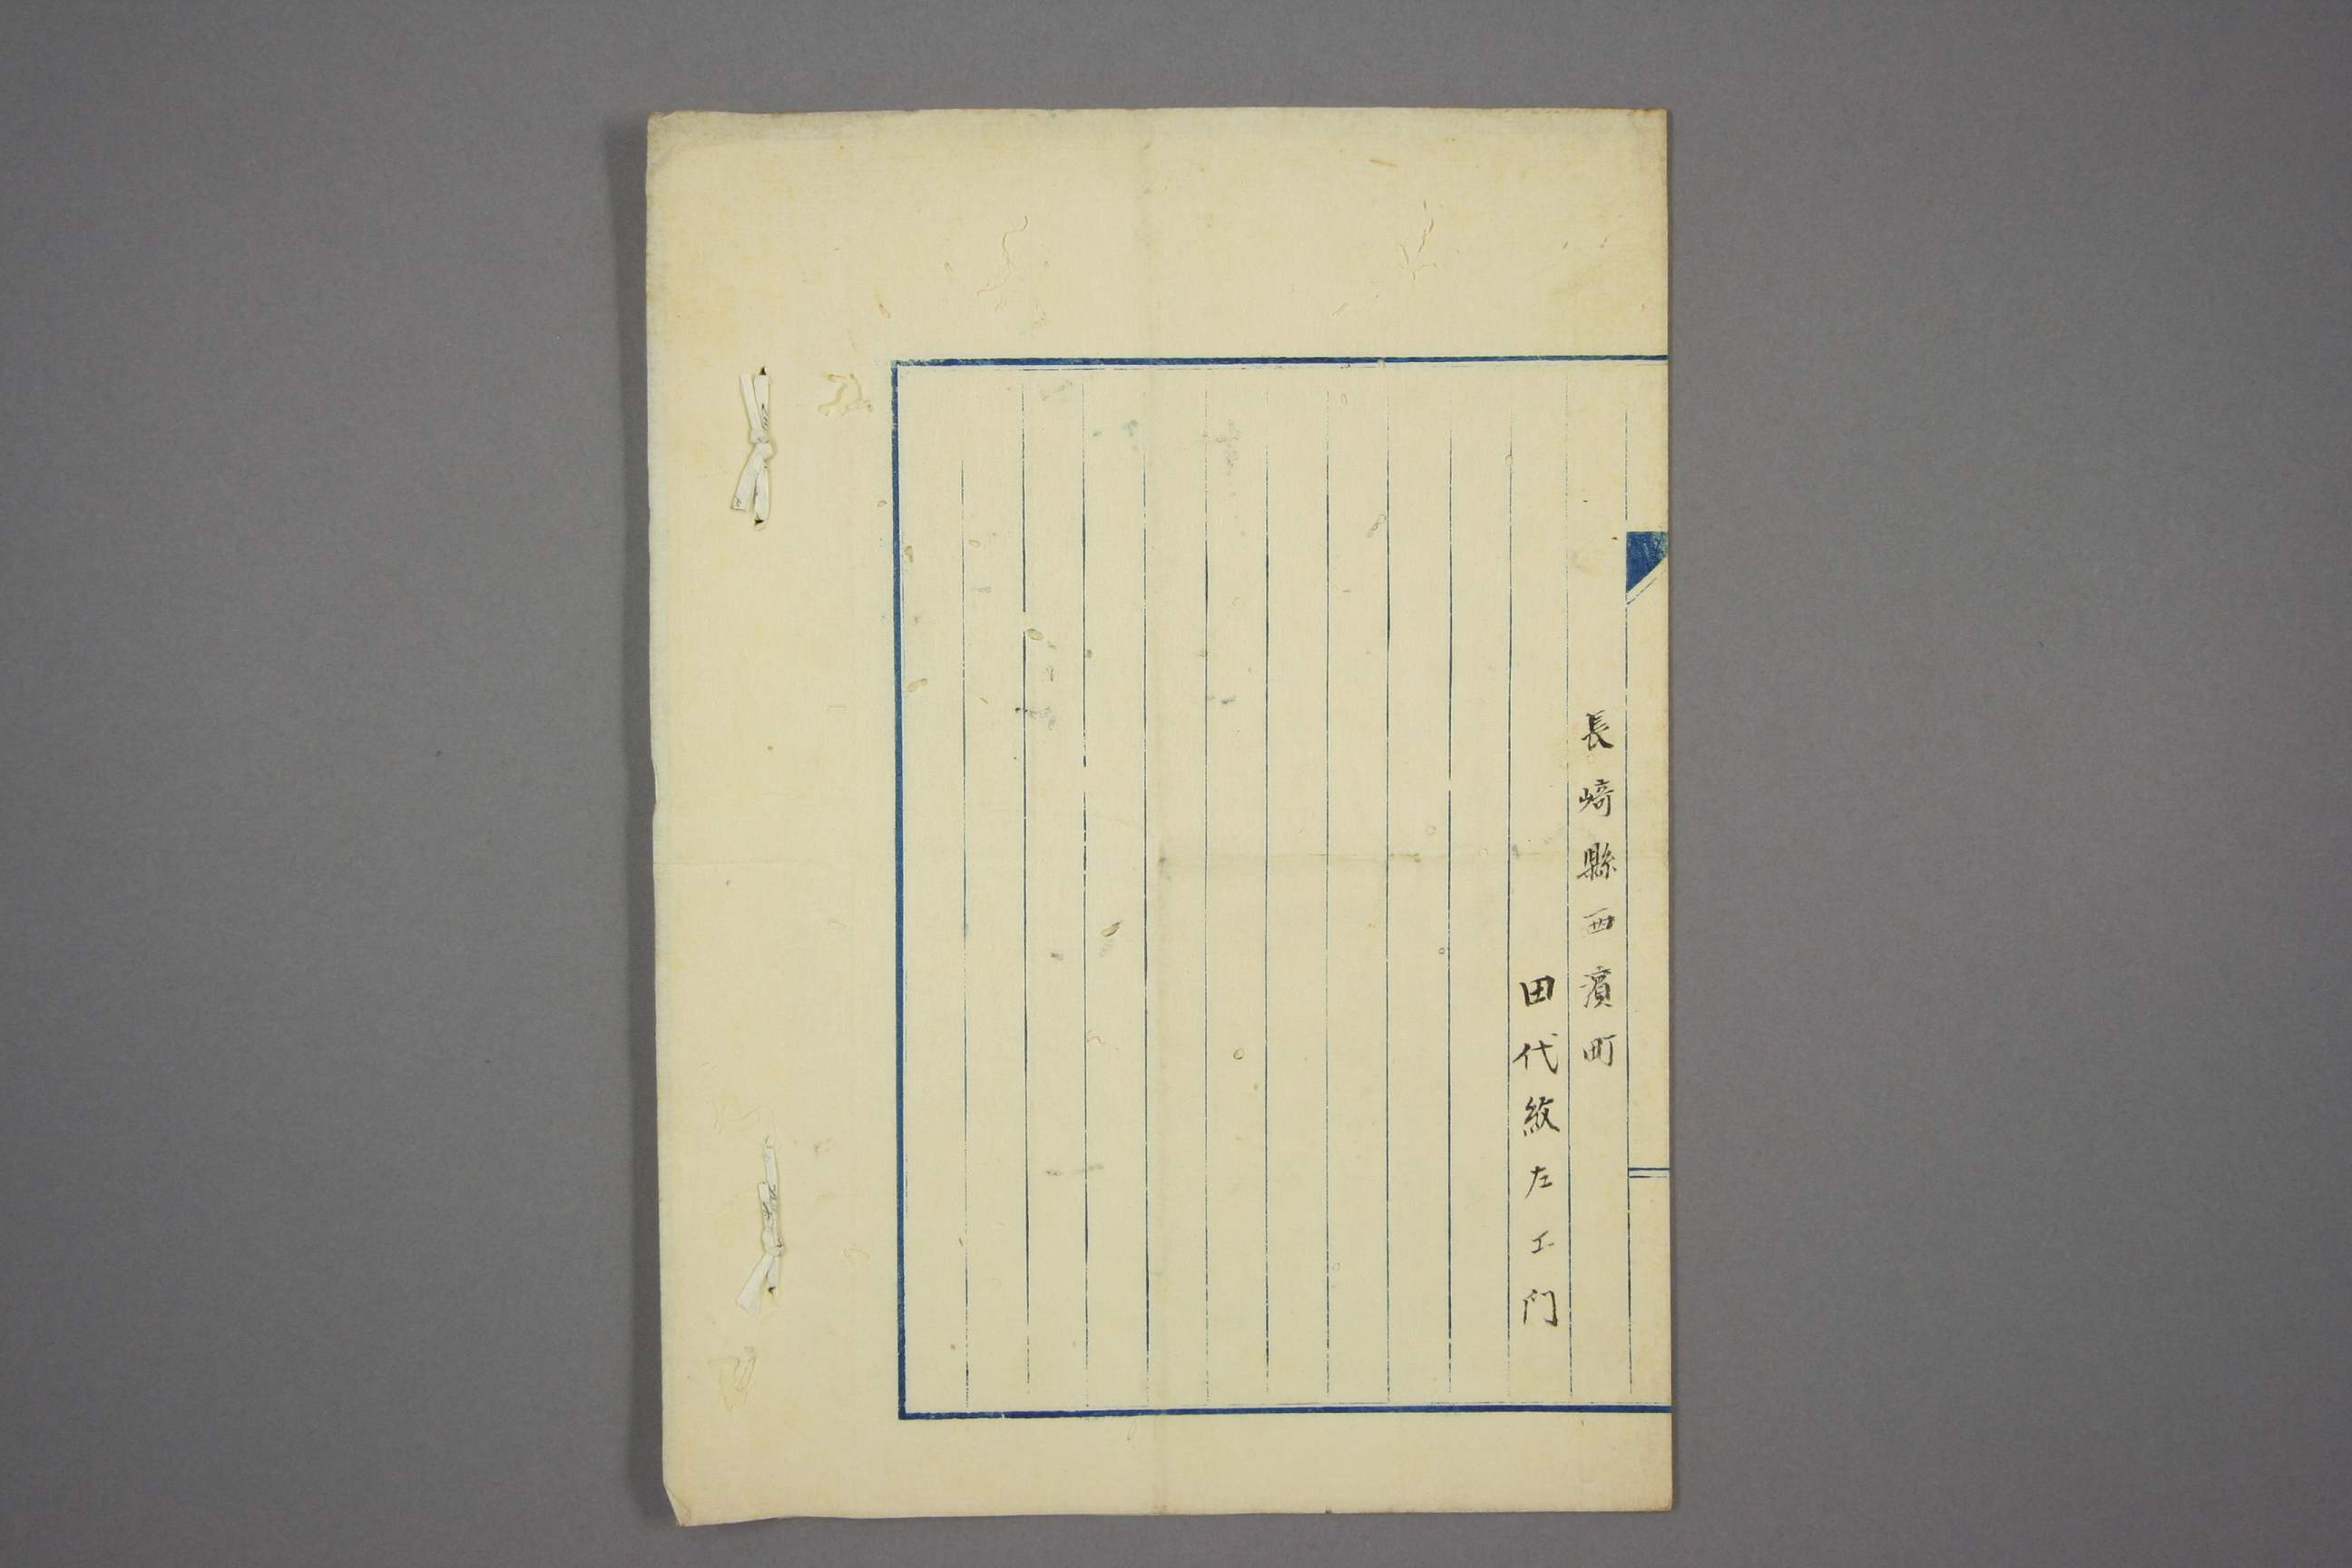 長﨑縣西濱町
田代紋左エ門